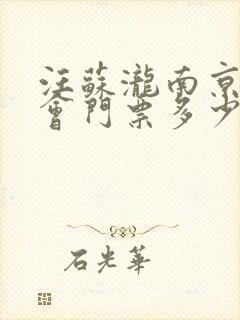 汪蘇瀧南京
會門票多少
石光華